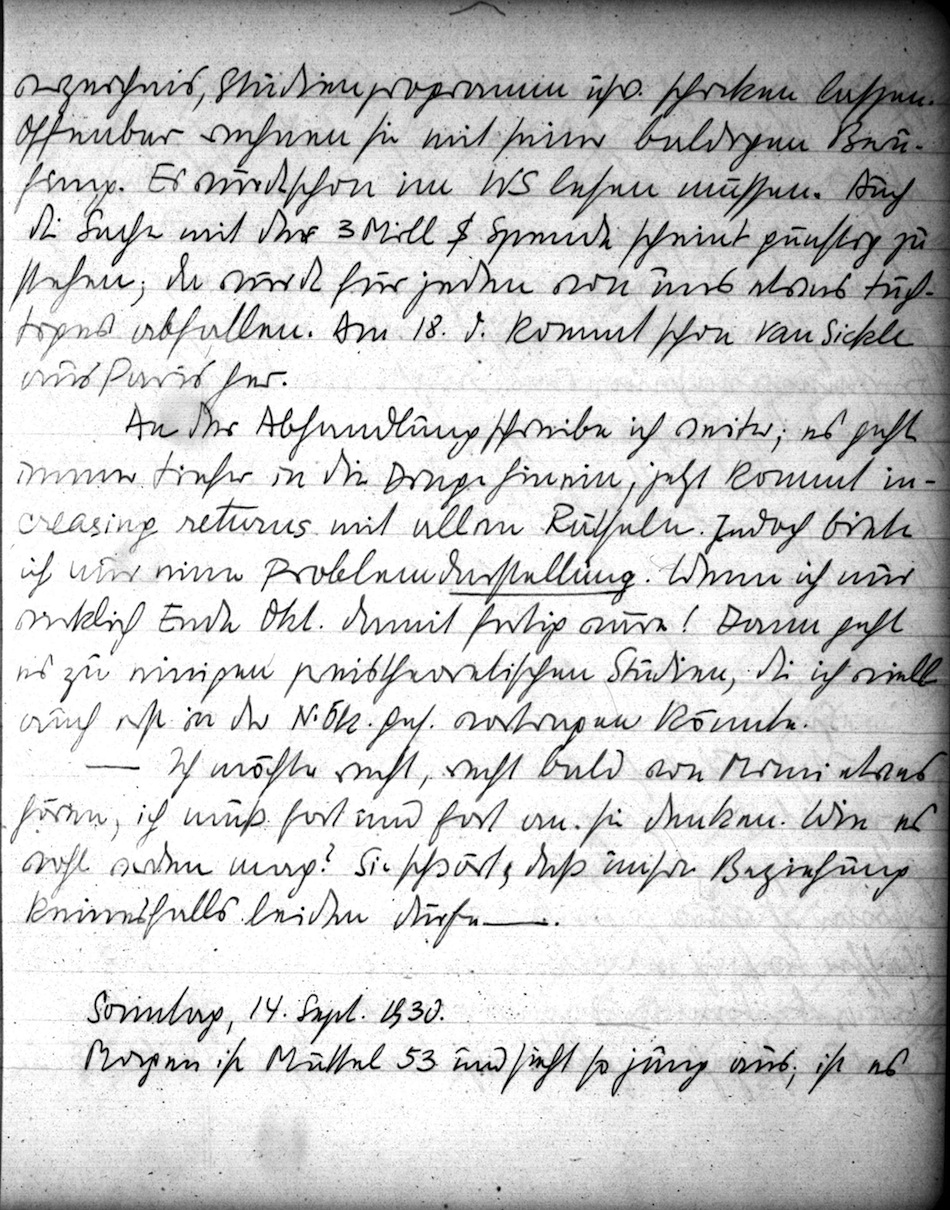 verzeichnis, Studienprogramm usw. schicken lassen.
Offenbar rechnen sie mit seiner baldigen Beru-
fung. Er wird schon im WS lesen müssen. Auch
die Sache mit der 3 Mill $ Spende scheint günstig zu
stehen; da wird für jeden von uns etwas tüch-
tiges abfallen. Am 18. d. kommt schon van Sickle
aus Paris her.
An der Abhandlung schreibe ich weiter; es geht
immer tiefer in die Dinge hinein, jetzt kommt in-
creasing returns mit allen Rätseln. Jedoch biete
ich nur eine Problemdarstellung. Wenn ich nur
wirklich Ende Okt. damit fertig wäre! Dann geht
es zu einigen preistheoretischen Studien, die ich viell
auch erst in der N.Ök. Ges. vortragen könnte.
— Ich möchte recht, recht bald von Mimi etwas
hören, ich muß fort und fort an sie denken. Wie es
wohl werden mag? Sie schwört, daß unsere Beziehung
keinesfalls leiden dürfe —.
Sonntag, 14. Sept. 1930.
Morgen ist Muttel 53 und sieht so jung aus; ist es